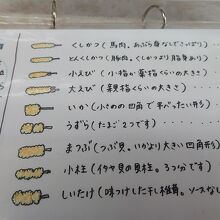 くしかつ(馬肉。あぶら身なしでさいぱり)
とんくしかつ(豚肉。くしかつより脂身あり)
小えび(小指か薬指くらいの大きさ)
大えび(親指くらいの大きさ)
いか(小さめの四角で平べったい形)
うずら(たまご2つです)
まつぶ(つぶ貝。いかより大きい四角形)
小柱(イタヤ貝の貝柱。3つ分です)
しいたけ(味つけした干し椎茸。ソースなし